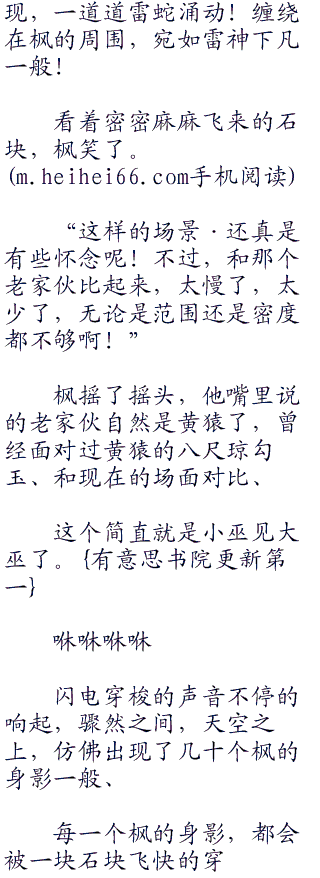 现，一道道雷蛇涌动！缠绕
在枫的周围，宛如雷神下凡
一般！
看着密密麻麻飞来的石
块，枫笑了。
(m.heihei66.com手机阅读)
“这样的场景·还真是
有些怀念呢！不过，和那个
老家伙比起来，太慢了，太
少了，无论是范围还是密度
都不够啊！”
枫摇了摇头，他嘴里说
的老家伙自然是黄猿了，曾
经面对过黄猿的八尺琼勾
玉、和现在的场面对比、
这个简直就是小巫见大
巫了。{有意思书院更新第
一}
咻咻咻咻
闪电穿梭的声音不停的
响起，骤然之间，天空之
上，仿佛出现了几十个枫的
身影一般、
每一个枫的身影，都会
被一块石块飞快的穿